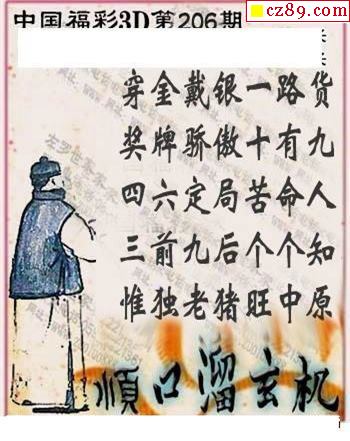 cz89.com
中国福彩3D第206期
穿金戴银一路货
奖牌骄傲十有九
四六定局苦命人
三前九后个个知
惟独老猪旺中原
順口溜玄机